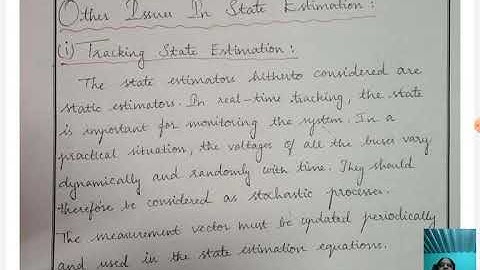 Other Issues In State Estimation :
(i) Tracking State Estimation :
The state estimators hitherto considered are
static estimators. In real-time tracking, the state
is important for monitoring the system. In a
practical situation, the voltages of all the buses vary
dynamically and randomly with time. They should
therefore be considered as stochastic processes.
The measurement vector must be updated periodically
and used in the state estimation equations.